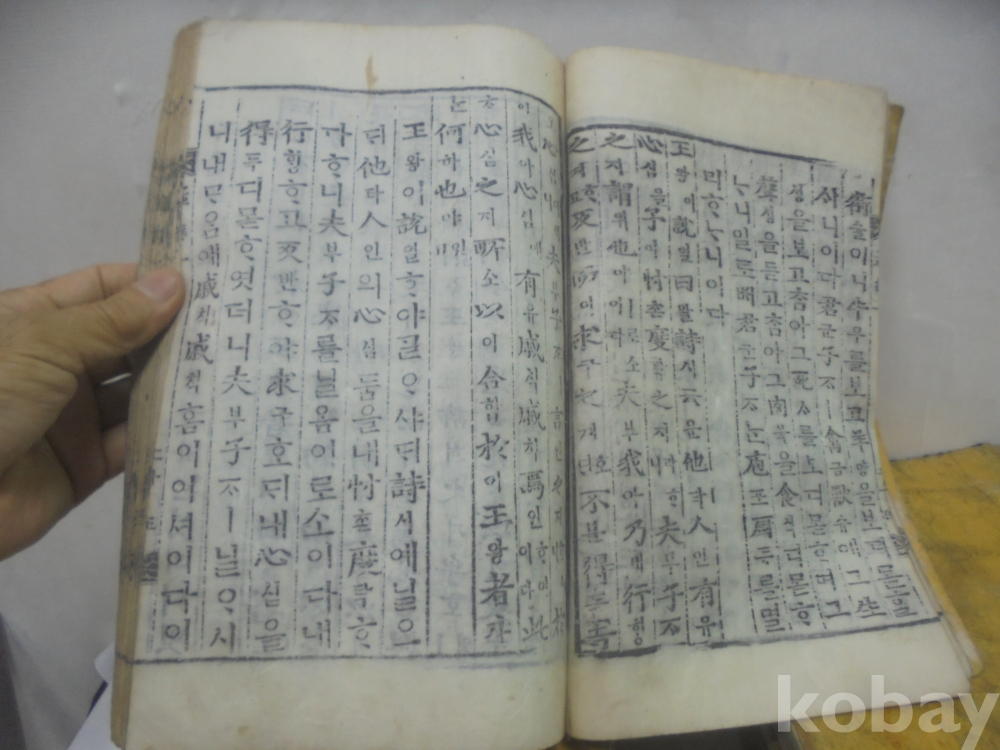 術슐이니우를보고양을보디몯ᄒᆞᆯ
사니이다君군子ᄌᆞㅣ禽금獸슈애그生
ᄉᆡᆼ을보고ᄎᆞᆷ아그死ᄉᆞ를보디몯ᄒᆞ며그
聲셩을듣고ᄎᆞᆷ아그肉육을食식디몯ᄒᆞ
ᄂᆞ니일로ᄡᅥ君군子ᄌᆞᄂᆞᆫ庖포廚듀를멀
리ᄒᆞᄂᆞ니이다
王왕이說열曰왈詩시云운他타人인有유
心심을予여忖촌度탁之지라ᄒᆞ니夫부子ᄌᆞ
之지謂위也야ㅣ로소이다夫부我아乃내行ᄒᆡᆼ
之지ᄒᆞ고反반而이求구之지호ᄃᆡ不블得득吾
心심夫부子ᄌᆞㅣ言언之지於
我아心심애有유戚쳑戚쳑焉언이다此
心심之지所소以이合합於어王왕者쟈
ᄂᆞᆫ何하也야ㅣ잇고
王왕이說열ᄒᆞ야ᄀᆞᆯᄋᆞ샤ᄃᆡ詩시예닐ᄋᆞ
ᄃᆡ他타人인의心심둠을내忖촌度탁ᄒᆞ
다ᄒᆞ니夫부子ᄌᆞ를닐옴이로소이다내
行ᄒᆡᆼᄒᆞ고反반ᄒᆞ야求구호ᄃᆡ내心심을
得득디몯ᄒᆞ엿더니夫부子ᄌᆞㅣ닐ᄋᆞ시
니내ᄆᆞᄋᆞᆷ애戚쳑戚쳑홈이이셔이다이
kobay